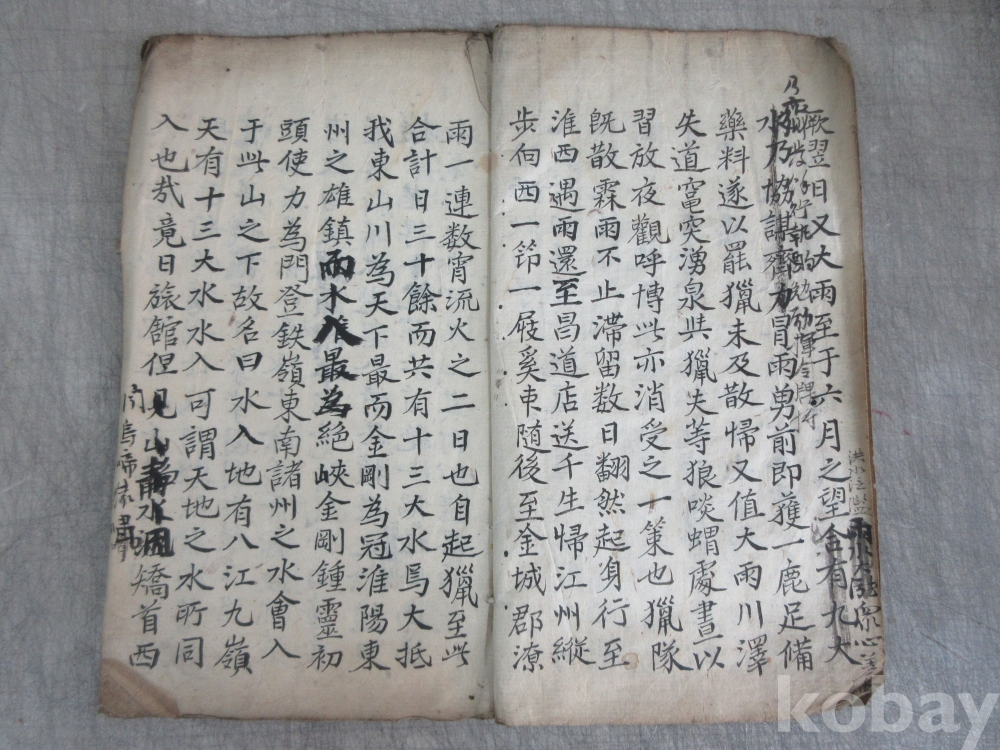 厥翌日又大雨至于六月之望合有九大
水乃協謀齊力冒雨勇前即獲一鹿足備
藥料遂以罷獵未及散帰又值大雨川澤
失道竄突湧泉此獵失等狼啖蝟處晝以
習放夜觀呼博此亦消受之一策也獵隊
旣散霖雨不止滯留数日翻然起身行至
淮西遇雨還至昌道店送千生帰江州縱
步向西一筇一屐奚東随後至金城郡潦
雨一連数宵流火之二日也自起獵至此
合計日三十餘而共有十三大水焉大抵
我東山川為天下最而金剛為冠淮陽東
州之雄鎮而水入最為絕峽金剛鍾靈初
頭使力為門登鉄嶺東南諸州之水會入
于此山之下故名曰水入地有八江九嶺
天有十三大水水入可謂天地之水所同
入也哉竟日旅館但見山靜水 矯首西
kobay